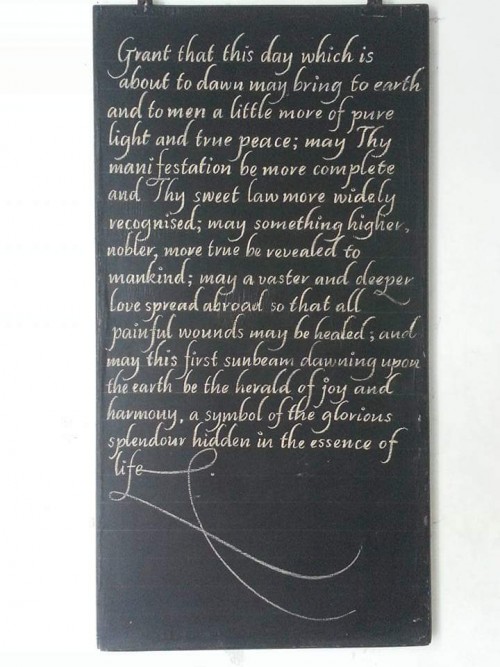 Grant that this day which is
about to dawn may bring to earth
and to men a little more of pure
light and true peace; may Thy
manifestation be more complete
and Thy sweet law more widely
recognised; may something higher,
nobler, more true be revealed to
mankind; may a vaster and deeper
love spread abroad so that all
painful wounds may be healed; and
may this first sunbeam dawning upon
the earth be the herald of joy and
harmony, a symbol of the glorious
splendour hidden in the essence of
life